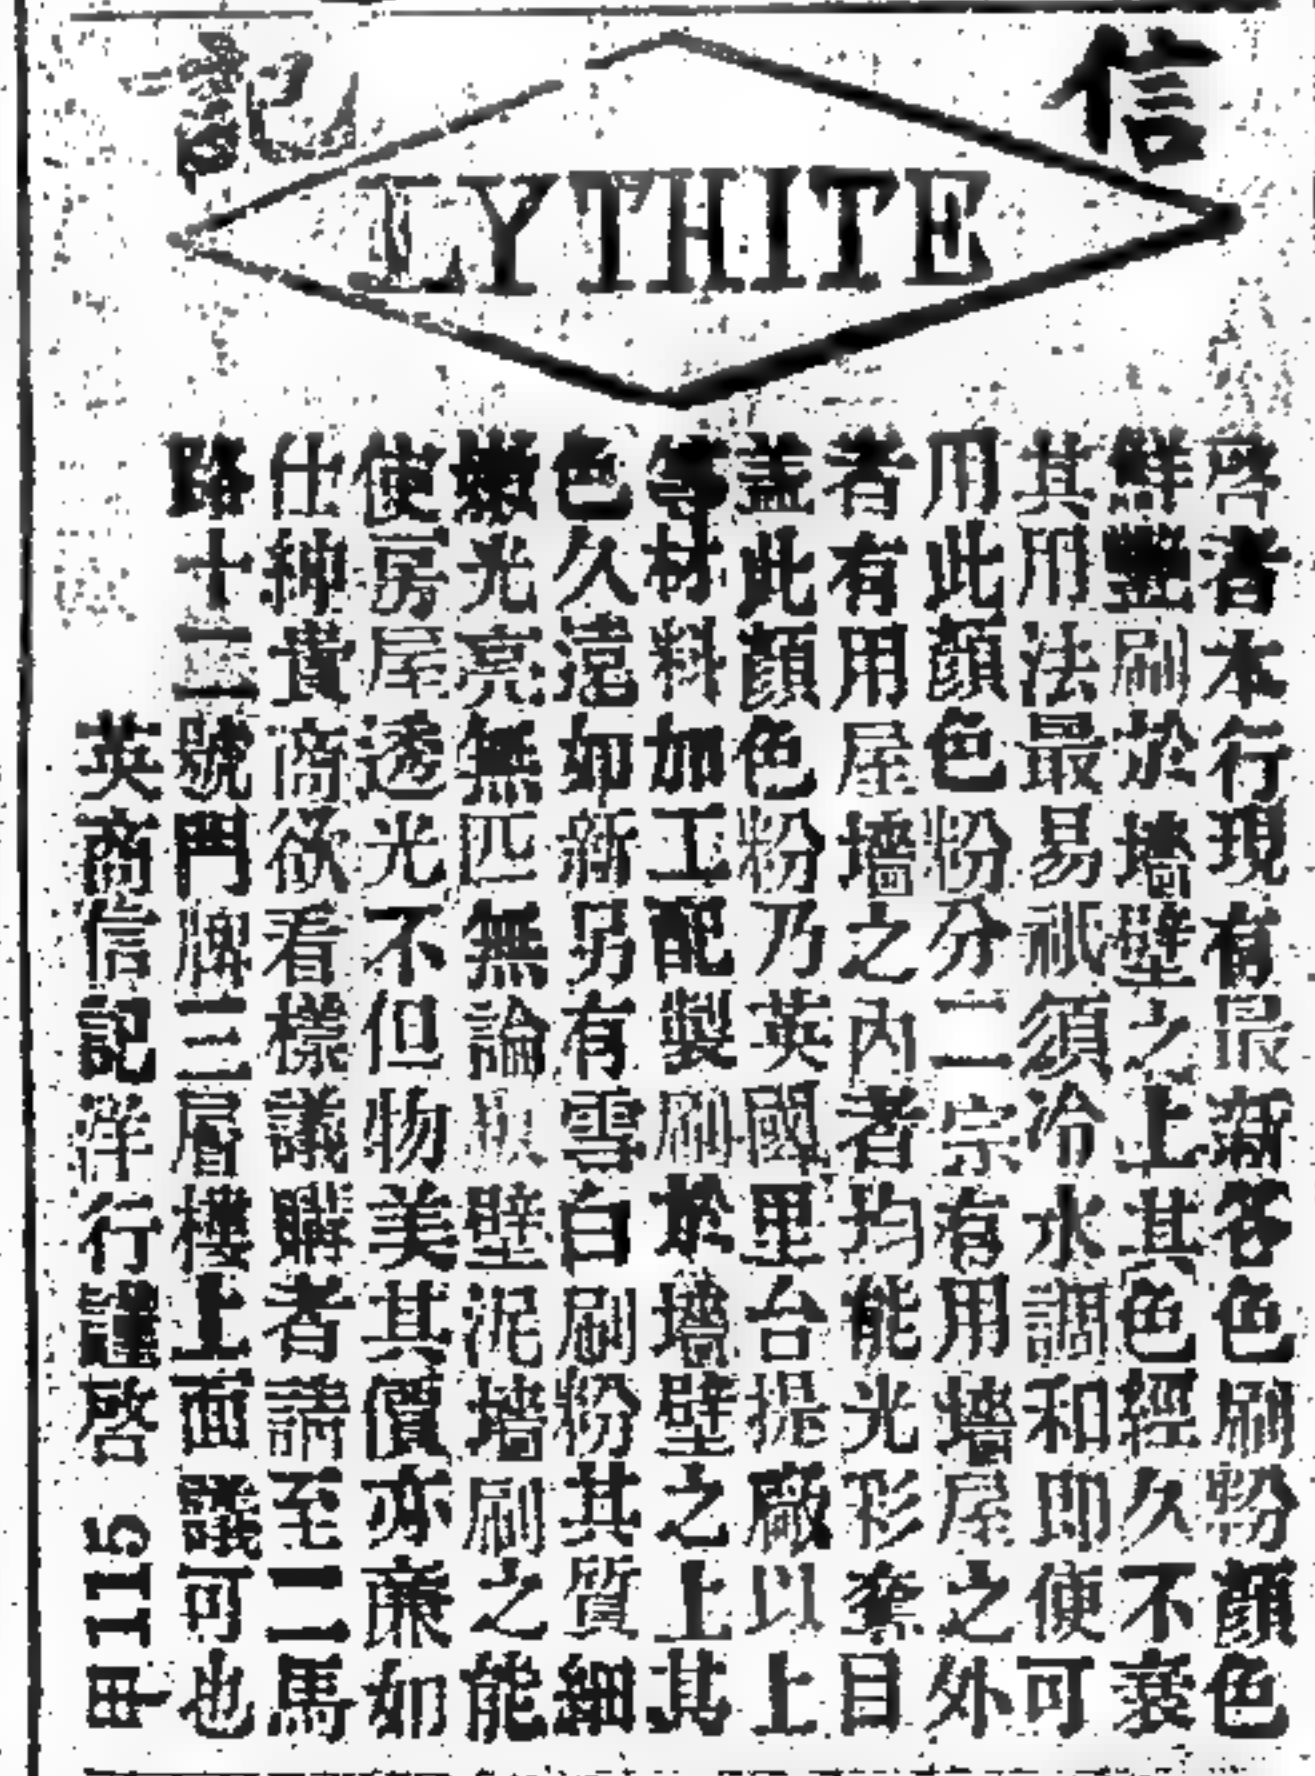 信記
LYTHITE
啓者本行現有最新各色刷粉顏色
鮮豔刷於墻壁之上其色經久不衰
其用法最易祇須冷水調和即便可
用此顏色粉分二宗有用墻屋之外
者有用屋墻之內者均能光彩奪目
盖此顏色粉乃英國里台提廠以上
等材料加工配製刷於墻壁之上其
色久遠如新另有雪白刷粉其質細
嫩光亮無匹無論板壁泥墙刷之能
使房屋透光不但物美其價亦廉如
仕紳貴商欲看樣議購者請至二馬
路十二號門牌三層樓上面議可也
英商信記洋行謹啓 115 甲